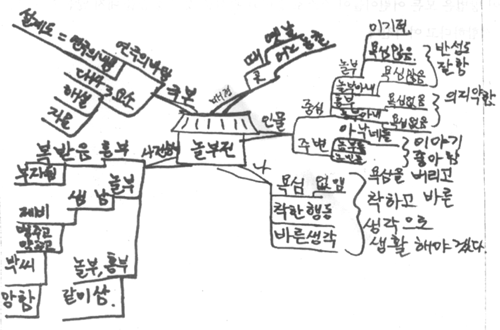 설계도 = 연극의 뼈대
연극의 바탕
대사
3요소
해설
지문
희곡
배경
때
옛날
곳
어느 농촌
놀부전
인물
중심
놀부
이기적
욕심많음
놀부아내
욕심많음
반성도 잘함
흥부
욕심없음
흥부아내
욕심없음
의지약함
주변
아낙네들
놀부들
이야기
좋아함
나
욕심 없앰
착한행동
바른생각
욕심을 버리고
착하고 바른
생각으로
생활해야겠다.
사건전개
복받은 흥부
부자됨
놀부
샘남
제비
박씨
망함
놀부, 흥부
같이삶